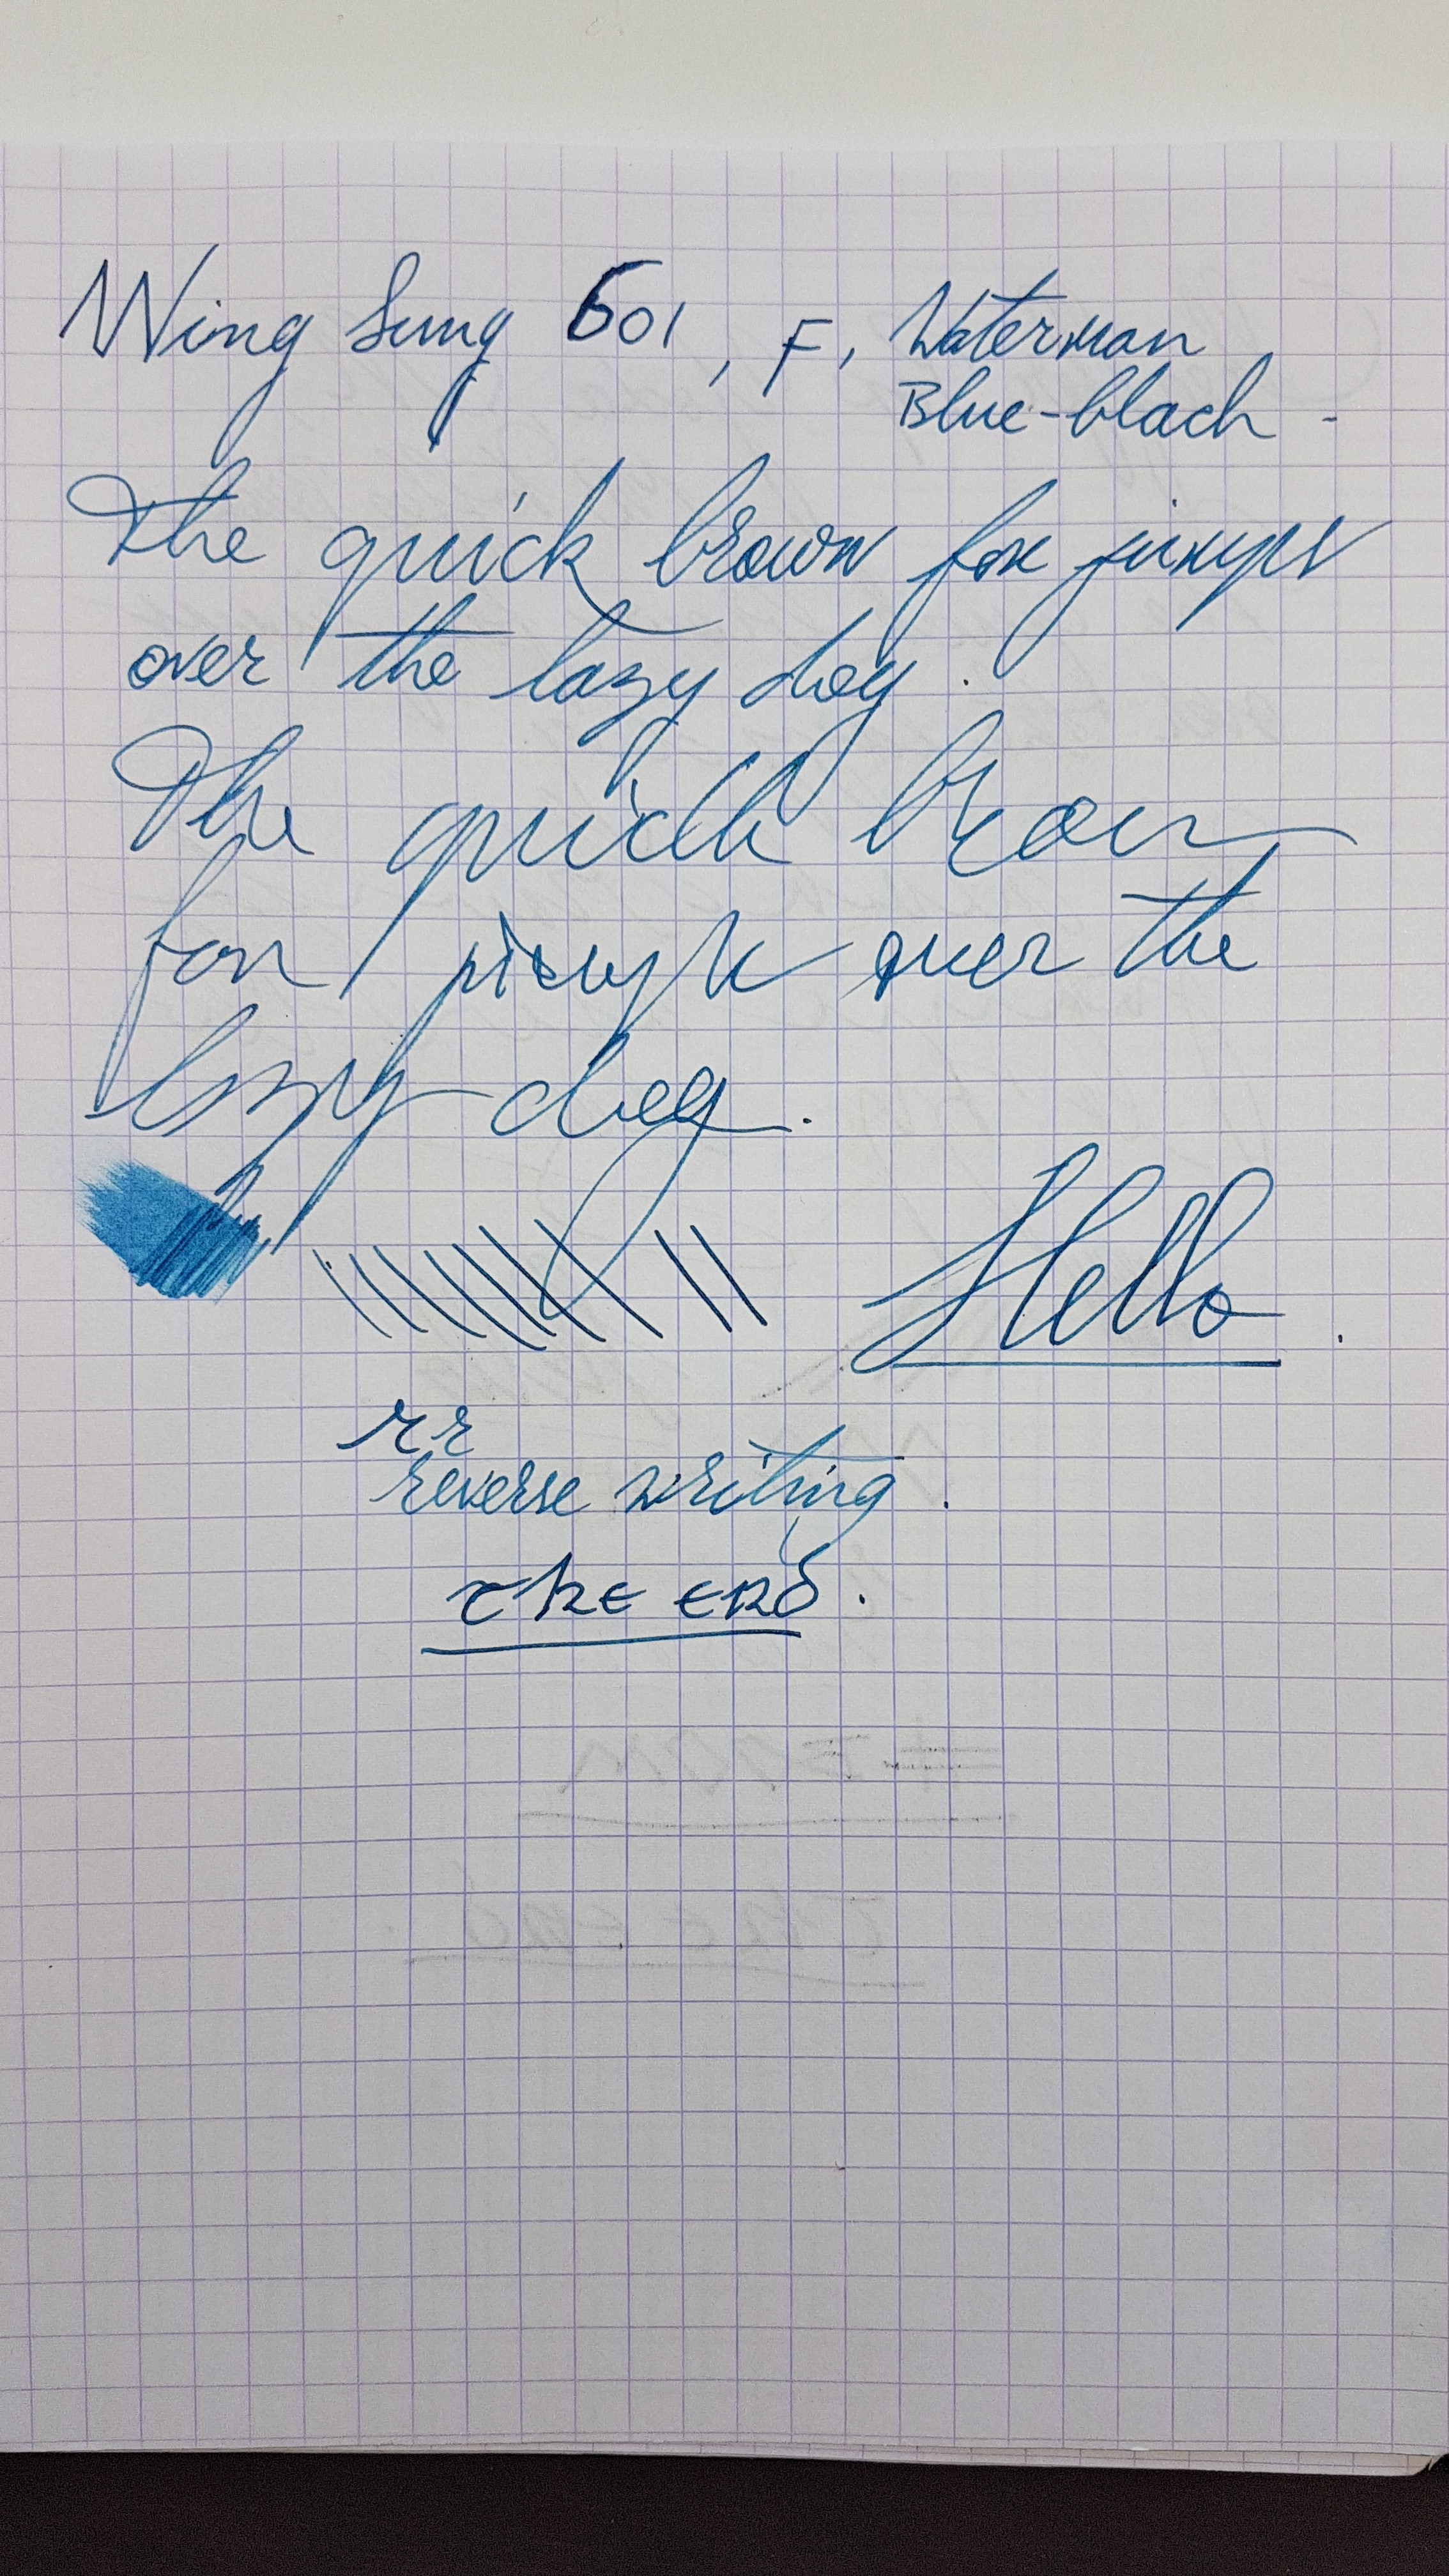 Wing Sung 601, F, Waterman
Blue-black -
The quick brown fox jumps
over the lazy dog.
The quick brown
fox jumps over the
lazy dog.
Hello.
r r
reverse writing.
THE END.